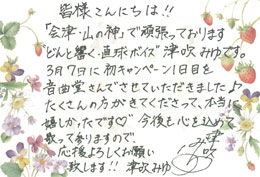 皆様こんにちは!!
「会津・山の神」で頑張っております
"どんと響く・直球ボイス" 津吹みゆです。
3月7日に初キャンペーン1日目を
音曲堂さんでさせていただきました♪
たくさんの方がきてくださって、本当に
嬉しかったです♡ 今後も心を込めて
歌って参りますので、
応援よろしくお願い
致します!! 津吹みゆ